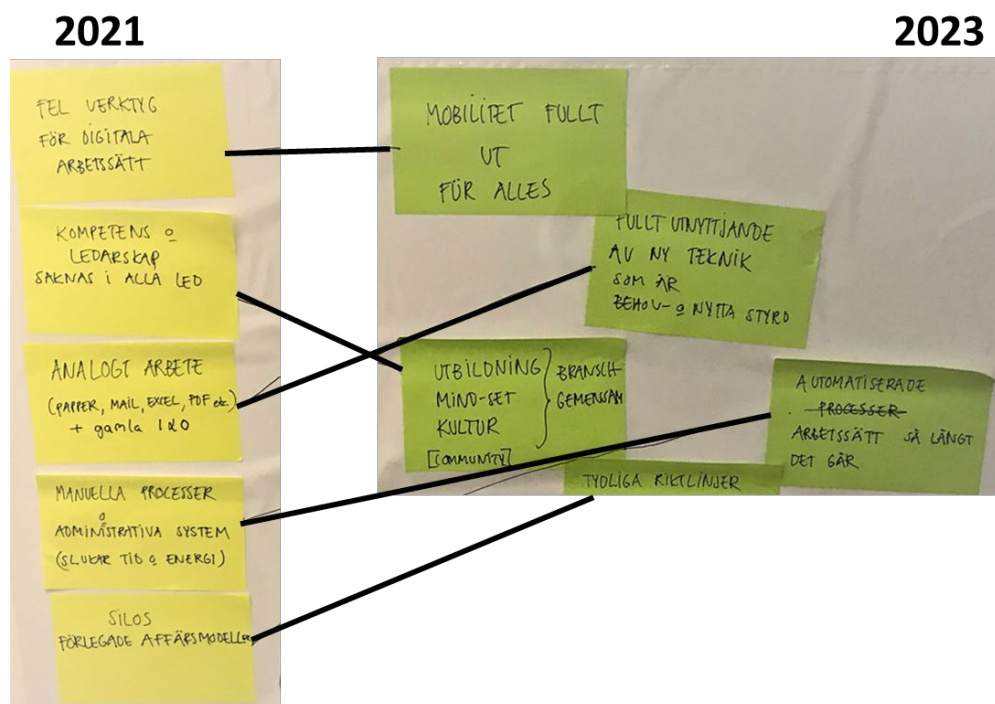 2021
2023
FEL VERKTYG
FÖR DIGITALA
ARBETSSÄTT
KOMPETENS o
LEDARSKAP
SAKNAS i ALLA LED
ANALOGT ARBETE
(PAPPER, MAIL, EXCEL, PDF etc.)
+ gamla
MANUELLA PROCESSER
o
ADMINISTRATIVA SYSTEM
(SLUKAR TID o ENERGI)
SILOS
FÖRLEGADE AFFÄRSMODELLER
MOBILITET FULLT
UT
FÜR ALLES
FULLT UTNYTTJANDE
AV NY TEKNIK
SOM ÄR
BEHOV- o NYTTA STYRD
UTBILDNING
MIND-SET
KULTUR
[COMMUNITY]
BRANSCH-
GEMENSAM
AUTOMATISERADE
PROCESSER
ARBETSSÄTT SÅ LÅNGT
DET GÅR
TYDLIGA RIKTLINJER